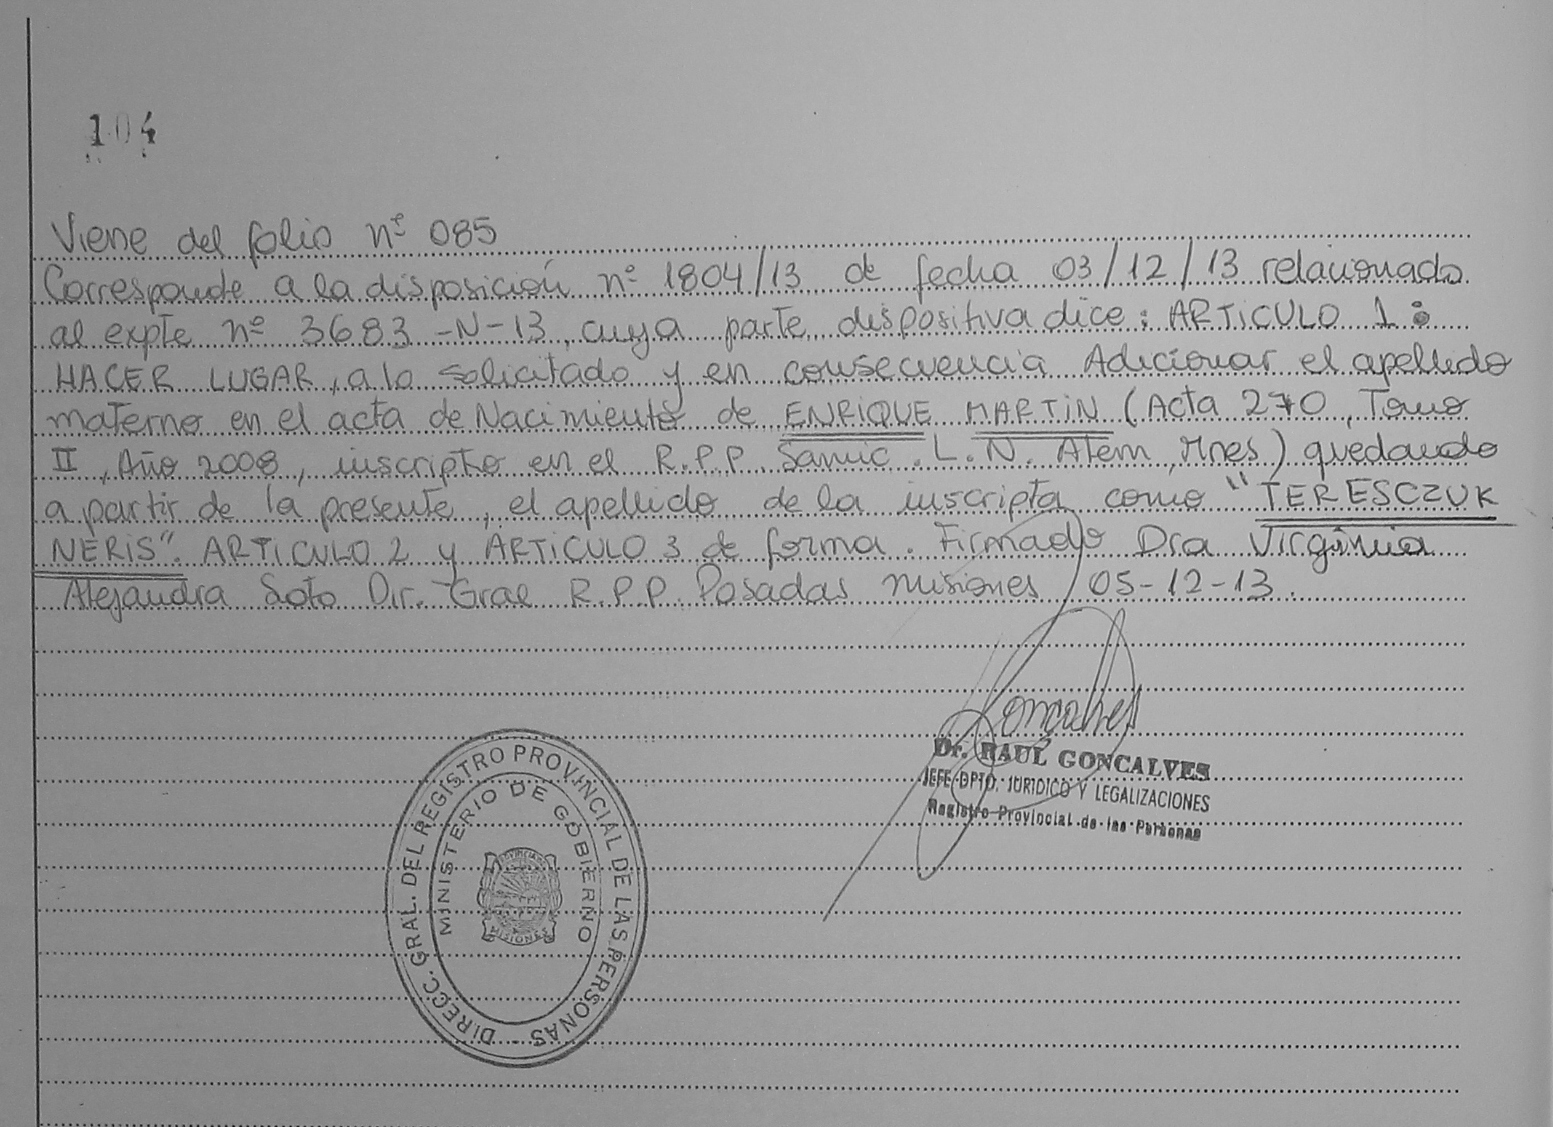 104
Viene del folio nº 085
Corresponde a la disposición nº 1804/13 de fecha 03/12/13 relacionado
al expte nº 3683-N-13, cuya parte dispositiva dice: ARTICULO 1:
HACER LUGAR, a lo solicitado y en consecuencia Adicionar el apellido
materno en el acta de Nacimiento de ENRIQUE MARTIN (Acta 270, Tomo
II, Año 2008, inscripto en el R.P.P. Samic. L. N. Alem, Mnes) quedando
a partir de la presente, el apellido de la inscripta como "TERESCZUK
NERIS". ARTICULO 2 y ARTICULO 3 de forma. Firmado Dra Virginia
Alejandra Soto Dir. Gral R.P.P. Posadas Misiones 05-12-13.
Goncalves
Dr. RAUL GONCALVES
JEFE DPTO. JURIDICO Y LEGALIZACIONES
Registro Provincial de las Personas
DIRECC. GRAL. DEL REGISTRO PROVINCIAL DE LAS PERSONAS
MINISTERIO DE GOBIERNO
PROVINCIA
MISIONES